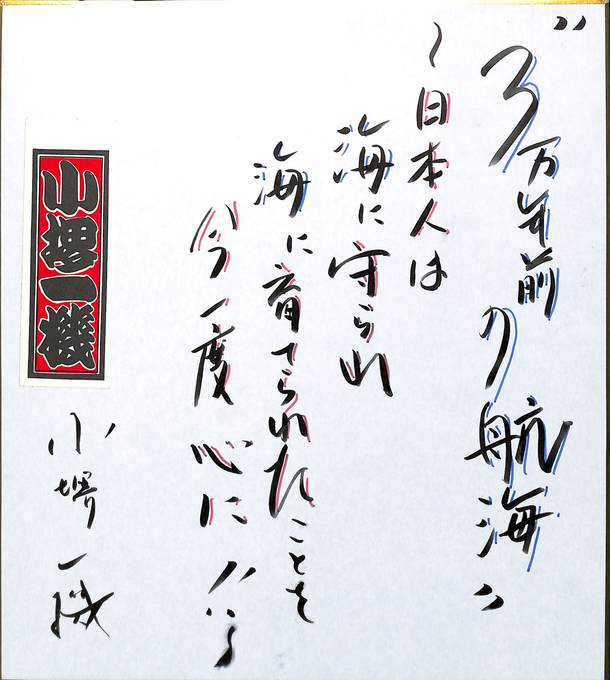 〝3万年前の航海〟
〜日本人は
海に守られ
海に育てられたことを
今一度心に!!〜
小堺一機
小堺一機